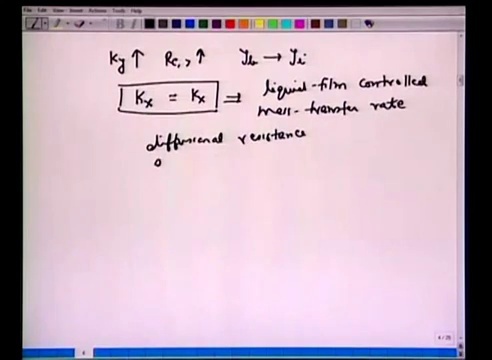 File Edit View Insert Actions Tools Help
B I
Ky ↑ Re,, ↑ yb → yi
Kx = Kx ⇒ liquid-film controlled
mass-transfer rate
diffusional resistance
o
4
4 / 25